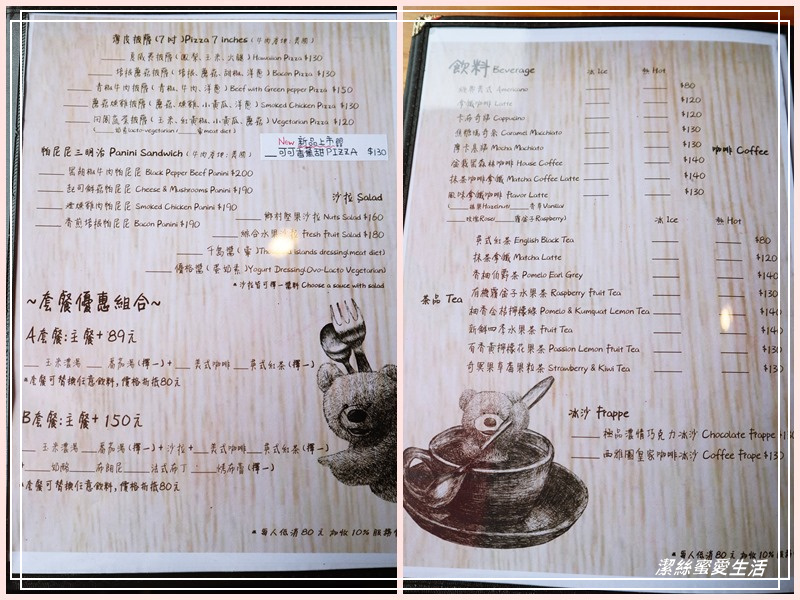 薄皮披薩(7吋)Pizza 7 inches (牛肉產地:美國)
夏威夷披薩(鳳梨、玉米、火腿) Hawaiian Pizza $130
培根蘑菇披薩(培根、蘑菇、甜椒、洋蔥) Bacon Pizza $130
青椒牛肉披薩(青椒、牛肉、洋蔥) Beef with Green pepper Pizza $150
蘑菇燻雞披薩(蘑菇、燻雞、小黃瓜、洋蔥) Smoked Chicken Pizza $130
田園蔬菜披薩(玉米、紅黃椒、小黃瓜、蘑菇) Vegetarian Pizza $120
(奶素lacto-vegetarian/ 葷meat diet)
New 新品上市囉
可可香蕉甜PIZZA $130
帕尼尼三明治 Panini Sandwich (牛肉產地:美國)
黑胡椒牛肉帕尼尼 Black Pepper Beef Panini $200
起司鮮菇帕尼尼 Cheese & Mushrooms Panini $190
煙燻雞肉帕尼尼 Smoked Chicken Panini $190
香煎培根帕尼尼 Bacon Panini $190
沙拉 Salad
鄉村堅果沙拉 Nuts Salad $160
綜合水果沙拉 Fresh Fruit Salad $180
千島醬(葷)Thousand islands dressing(meat diet)
優格醬(蛋奶素)Yogurt Dressing(Ovo-Lacto Vegetarian)
*沙拉皆可擇一醬料 Choose a sauce with salad
~套餐優惠組合~
A套餐:主餐+89元
玉米濃湯 蕃茄湯(擇一)+ 美式咖啡 英式紅茶(擇一)
*套餐可替換任意飲料,價格折抵80元
B套餐:主餐+150元
玉米濃湯 蕃茄湯(擇一)+沙拉+ 美式咖啡 英式紅茶(擇一)
+ 奶酪 布朗尼 法式布丁 烤布蕾(擇一)
*套餐可替換任意飲料,價格折抵80元
*每人低消80元 加收10%服務
飲料 Beverage 冰 Ice 熱 Hot
咖啡 Coffee
經典美式 Americano $80
拿鐵咖啡 Latte $120
卡布奇諾 Cappucino $120
焦糖瑪奇朵 Caramel Macchiato $130
摩卡基諾 Mocha Mochiato $130
金磊黑森林咖啡 House Coffee $140
抹茶咖啡拿鐵 Matcha Coffee Latte $140
風味拿鐵咖啡 flavor Latte $130
(榛果Hazelnut/ 香草Vanilla/
玫瑰Rose/ 覆盆子Raspberry)
冰 Ice 熱 Hot
茶品 Tea
英式紅茶 English Black Tea $80
抹茶拿鐵 Matcha Latte $120
香柚伯爵茶 Pomelo Earl Grey $140
有機覆盆子水果茶 Raspberry Fruit Tea $130
柚香金桔檸檬綠 Pomelo & Kumquat Lemon Tea $140
新鮮四季水果茶 Fruit Tea $140
百香黃檸檬花果茶 Passion Lemon Fruit Tea $130
奇異果草莓果粒茶 Strawberry & Kiwi Tea $130
冰沙 Frappe
極品濃情巧克力冰沙 Chocolate Frappe $130
西雅圖皇家咖啡冰沙 Coffee Frappe $130
*每人低消80元 加收10%服務
潔絲蜜愛生活